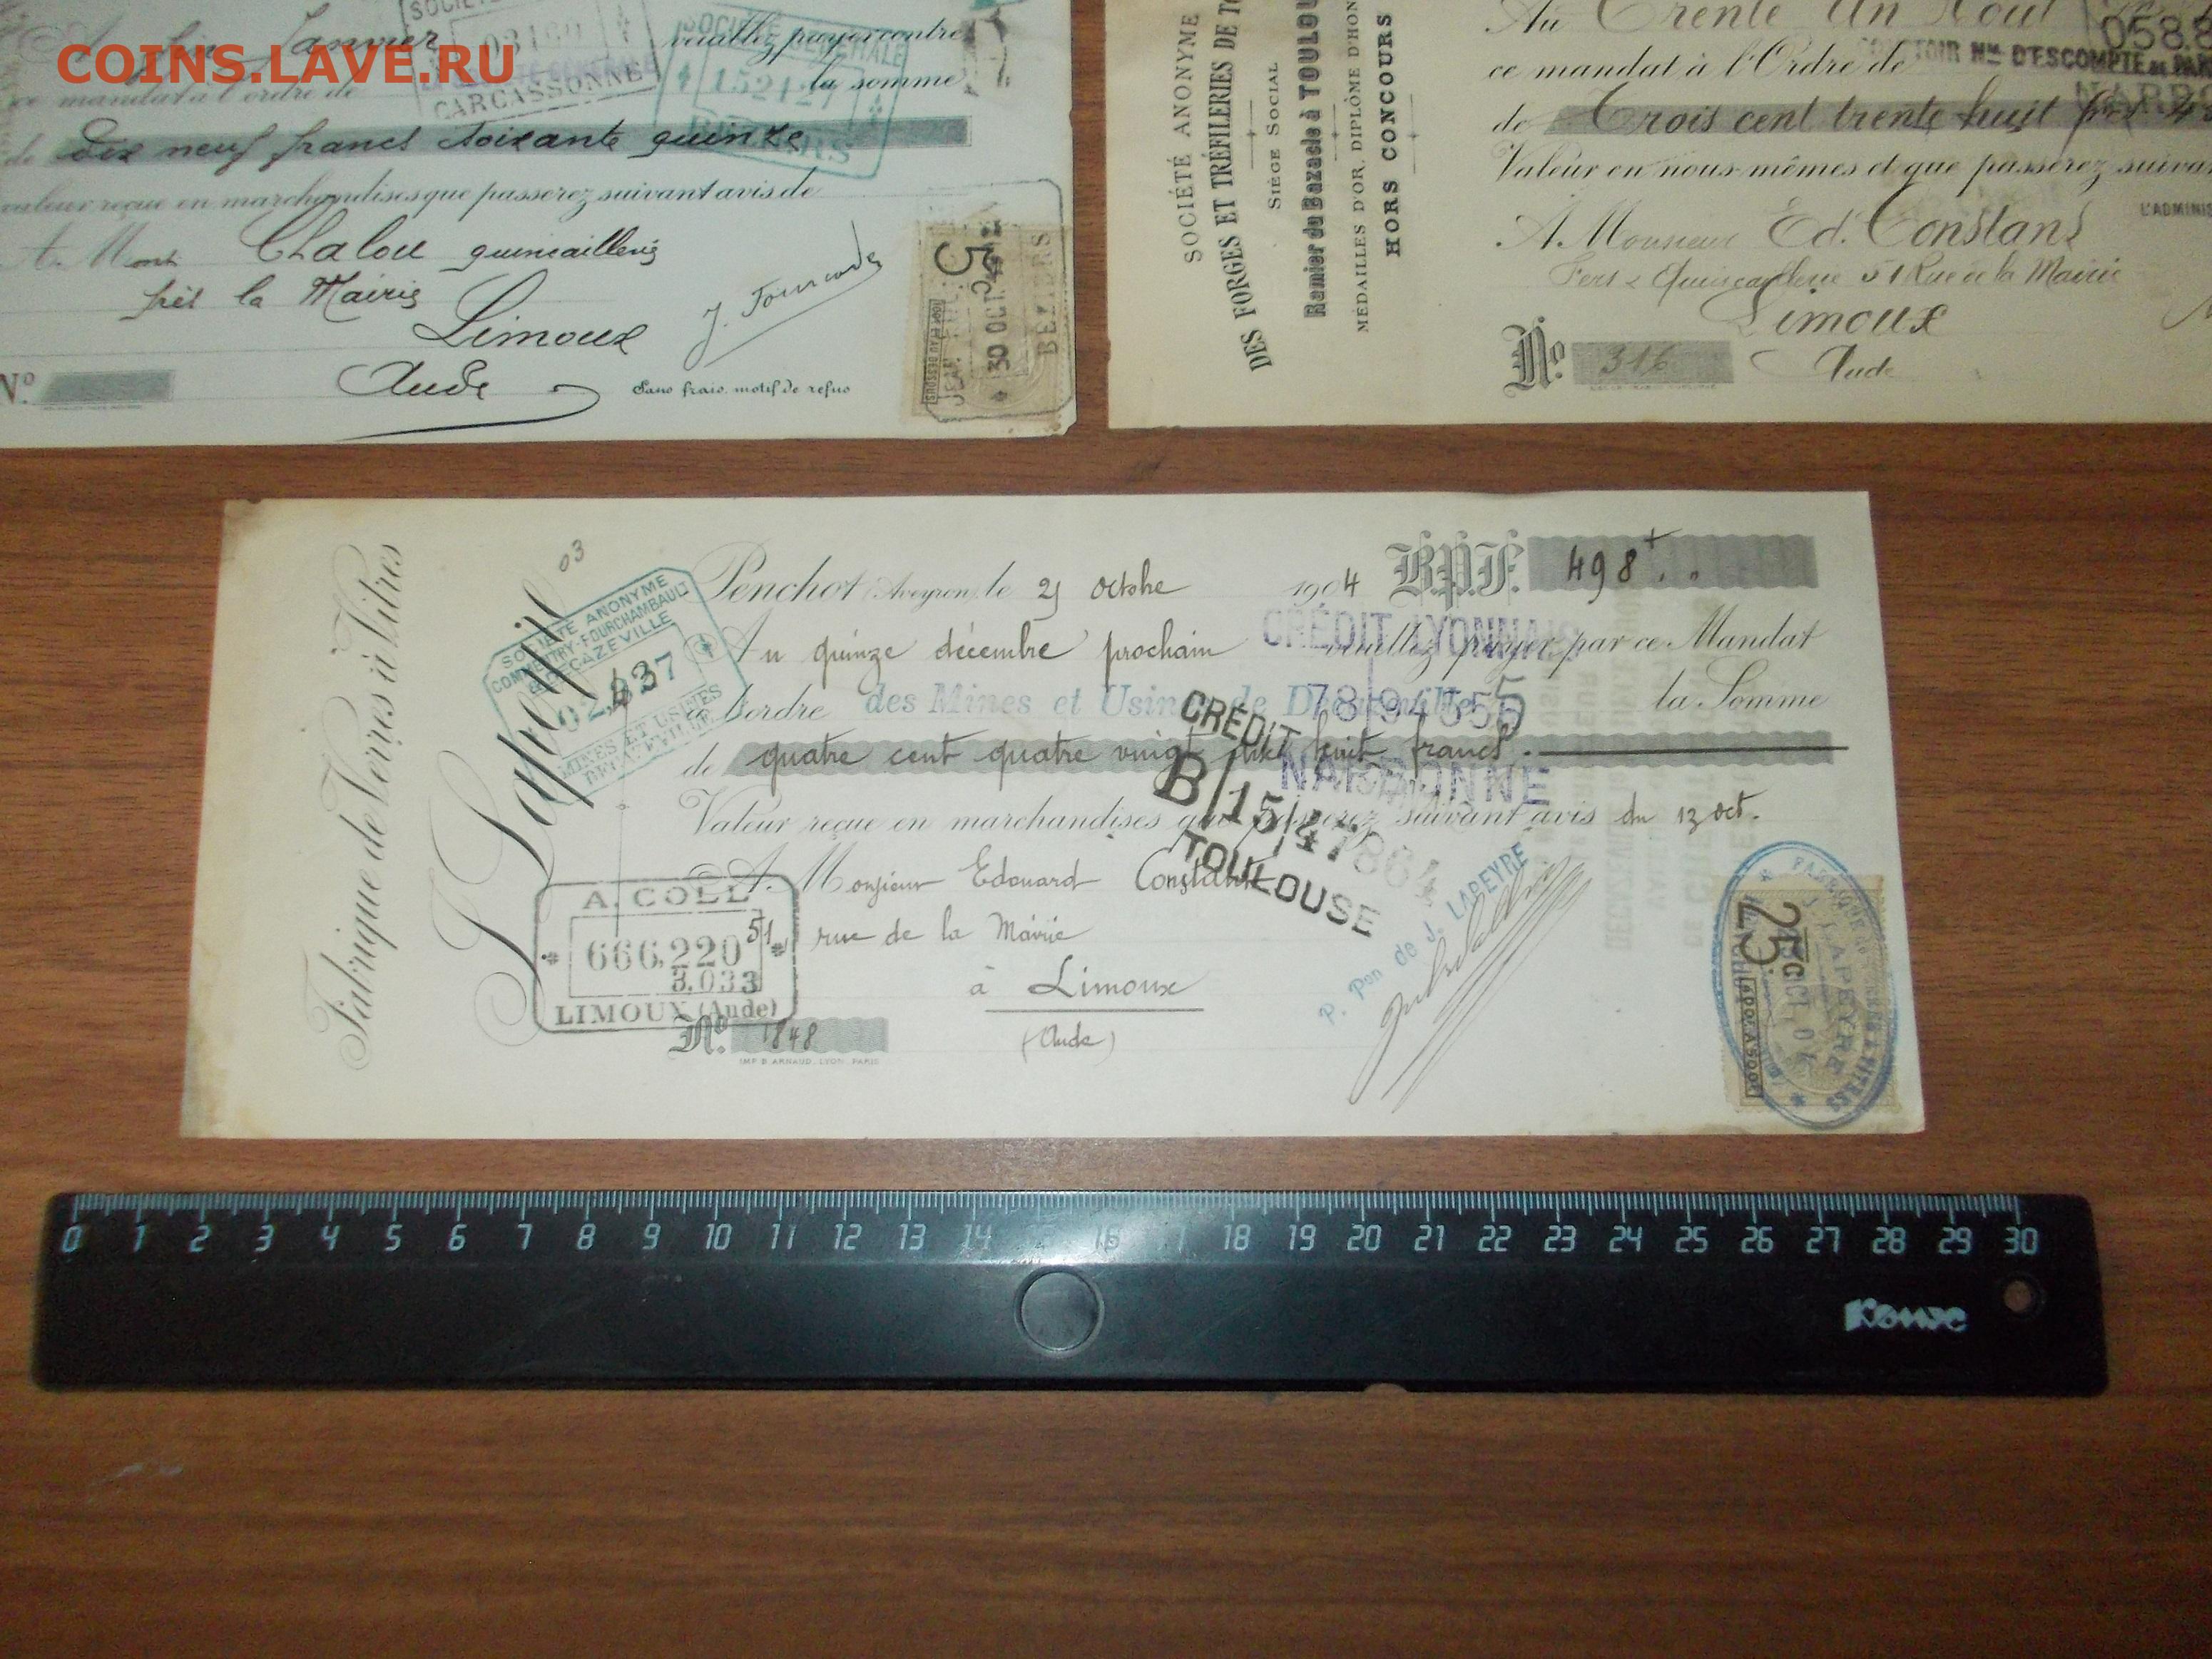 COINS.LAVE.RU
SOCIÉTÉ
Janvier
veuillez payer contre
ce mandat à l'ordre de
la somme
CARCASSONNE
SOCIÉTÉ GÉNÉRALE
152421
de Dix neuf francs soixante quinze
valeur reçue en marchandises que passerez suivant avis de
A Mont Chalou quincaillerie
près la Mairie
Limoux
Aude
J. Fourcade
No
Sans frais, motif de refus
5
30 OCT
BEZIERS
SOCIÉTÉ ANONYME
DES FORGES ET TRÉFILERIES DE
SIÈGE SOCIAL
Ramier du Bazacle à TOULOU
MÉDAILLES D'OR, DIPLÔME D'HON
HORS CONCOURS
Au Trente Un Aout
058.8
ce mandat à l'Ordre de
COMPTOIR NAL D'ESCOMPTE DE PAR
NARB
de Trois cent trente huit
Valeur en nous-mêmes et que passerez suiva
L'ADMINIS
A Monsieur Ed. Constans
Fers & Quincaillerie 51 Rue de la Mairie
Limoux
Aude
No. 316
Fabrique de Verres à Vitres
J. Lapeyre
03
SOCIÉTÉ ANONYME
COMMENTRY-FOURCHAMBAULT
& DECAZEVILLE
MINES ET USINES
DECAZEVILLE
Penchot (Aveyron), le 21 octobre 1904 B.P.F. 498
Au quinze décembre prochain veuillez payer par ce Mandat
CRÉDIT LYONNAIS
à l'ordre des Mines et Usines de Decazeville la Somme
de quatre cent quatre vingt dix huit francs.
NARBONNE
Valeur reçue en marchandises que passerez suivant avis du 13 oct.
CRÉDIT
B/15/47
TOULOUSE
A Monsieur Edouard Constans
51 rue de la Mairie
à Limoux
(Aude)
A. COLL
666,220
3.033
LIMOUX (Aude)
No. 1848
IMP. B. ARNAUD, LYON-PARIS
P. Pon de J. LAPEYRE
25c
J. LAPEYRE
0 1 2 3 4 5 6 7 8 9 10 11 12 13 14 15 16 17 18 19 20 21 22 23 24 25 26 27 28 29 30